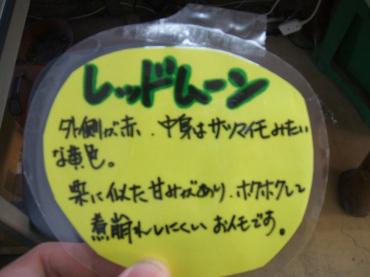 レッドムーン
外側が赤、中身はサツマイモみたい
な黄色。
栗に似た甘みがあり、ホクホクして
煮崩れしにくいおイモです。